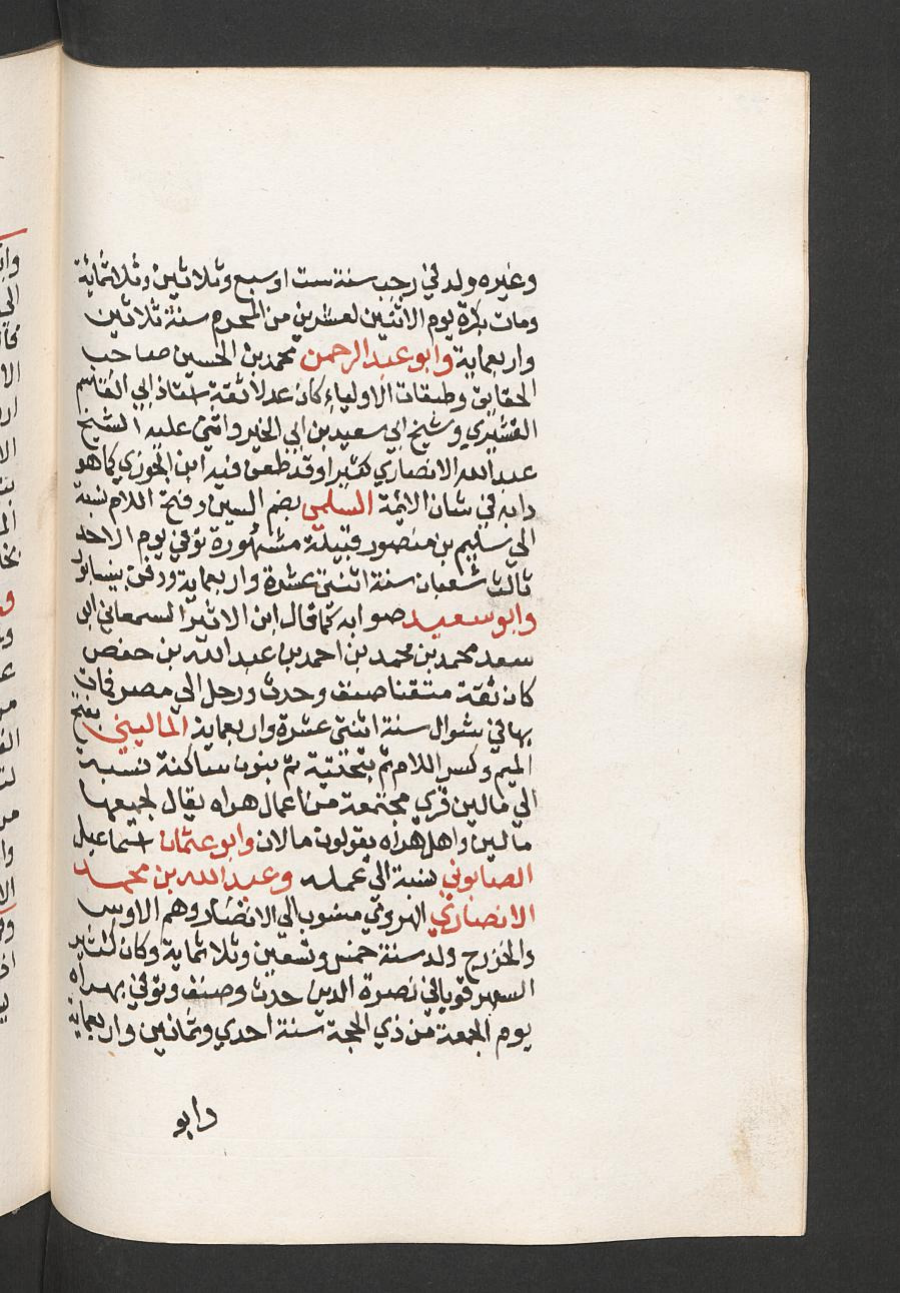 وغيره ولد في رجب سنة ست او سبع وثلاثين وثلاثمائة
ومات بكرة يوم الاثنين لعشرين من المحرم سنة ثلاثين
واربعماية وابو عبد الرحمن محمد بن الحسين صاحب
الحقايق وطبقات الاولياء كان عدلا ثقة استاذ ابي القاسم
القشيري وشيخ ابي سعيد بن ابي الخير واثنى عليه الشيخ
عبد الله الانصاري كثيرا وقد طعن فيه ابن الجوزي كما هو
دابه في شان الائمة السلمي بضم السين وفتح اللام نسبة
الي سليم بن منصور قبيلة مشهورة توفي يوم الاحد
ثالث شعبان سنة اثنتي عشرة واربعماية ودفن بنيسابور
وابو سعيد صوابه كما قال ابن الاثير السمعاني ابي
سعد محمد بن محمد بن احمد بن عبد الله بن حفص
كان ثقة متقنا صنف وحدث ورحل الي مصر فمات
بها في شوال سنة اثنتي عشرة واربعماية الماليني بفتح
الميم وكسر اللام ثم بتحتية ثم بنون ساكنة نسبة
الي مالين قري مجتمعة من اعمال هراه يقال لجميعها
مالين واهل هراه يقولون مالان وابو عثمان اسماعيل
الصابوني نسبة الي عمله وعبد الله بن محمد
الانصاري الهروي منسوب الي الانصار وهم الاوس
والخزرج ولد سنة خمس وتسعين وثلاثماية وكان كثير
السهر قويا في نصرة الدين حدث وصنف وتوفي بهراه
يوم الجمعة من ذي الحجة سنة احدي وثمانين واربعماية
وابو